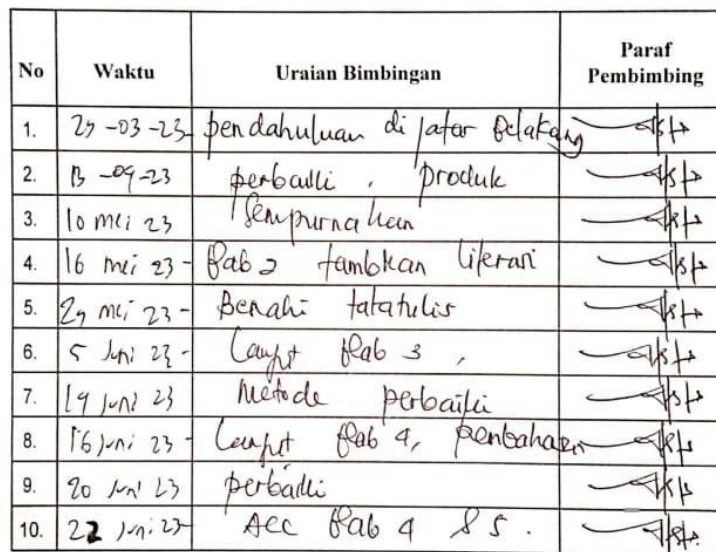 No Waktu Uraian Bimbingan Paraf Pembimbing
1. 29-03-23 pendahuluan di latar belakang
2. 13-04-23 perbaiki, produk
3. 10 mei 23 Sempurnakan
4. 16 mei 23 - Bab 2 tambhkan literasi
5. 29 mei 23 - Benahi tatatulis
6. 5 Juni 23 - Lanjut Bab 3,
7. 14 Juni 23 Metode perbaiki
8. 16 Juni 23 - Lanjut Bab 4, pembahasan
9. 20 Juni 23 perbaiki
10. 22 Juni 23 Acc Bab 4 & 5.